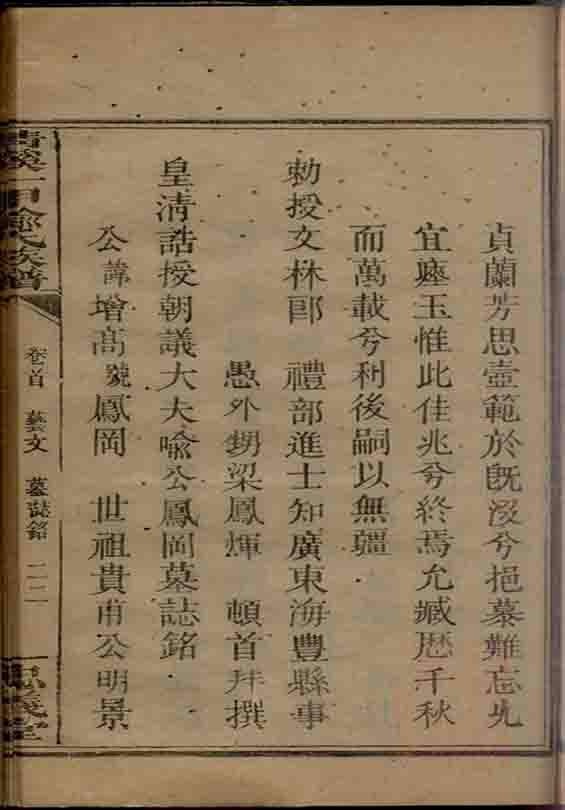 貞蘭芳思壼範於既沒兮挹慕難忘
宜瘞玉惟此佳兆兮終焉允臧厯千秋
而萬載兮利後嗣以無疆
勅授文林郎 禮部進士知廣東海豐縣事
愚外甥梁鳳煇 頓首拜撰
皇清誥授朝議大夫喻公鳳岡墓誌銘
公諱增髙號鳳岡 世祖貴甫公明景
溪一甲喻氏族譜
卷首 藝文 墓誌銘 二二
堂